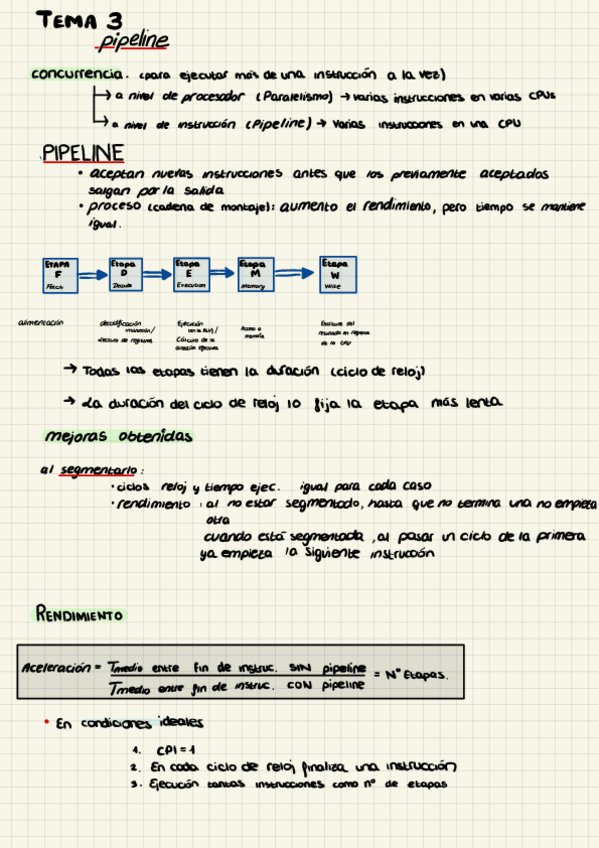 TEMA 3
pipeline
concurrencia. (para ejecutar más de una instrucción a la vez)
→ a nivel de procesador (Paralelismo) → varias instrucciones en varias CPUs
→ a nivel de instrucción (Pipeline) → varias instrucciones en una CPU
PIPELINE
• aceptan nuevas instrucciones antes que los previamente aceptados
salgan por la salida
• proceso (cadena de montaje): aumento el rendimiento, pero tiempo se mantiene
igual.
ETAPA F Fetch
Etapa D Decode
Etapa E Execution
Etapa M Memory
Etapa W Write
alimentación
decodificación
instrucción/
lectura de registros
Ejecución
en la ALU/
Cálculo de la
dirección efectiva
Acceso a
memoria
Escritura del
resultado en registros
de la CPU
→ Todas las etapas tienen la duración (ciclo de reloj)
→ La duración del ciclo de reloj lo fija la etapa más lenta
mejoras obtenidas
al segmentarlo:
• ciclos reloj y tiempo ejec. igual para cada caso
• rendimiento: al no estar segmentado, hasta que no termina una no empieza
otra
cuando está segmentada, al pasar un ciclo de la primera
ya empieza la siguiente instrucción
RENDIMIENTO
Aceleración = Tmedio entre fin de instruc. SIN pipeline
Tmedio entre fin de instruc. CON pipeline
= Nº Etapas.
• En condiciones ideales
1. CPI = 1
2. En cada ciclo de reloj finaliza una instrucción
3. Ejecución tantas instrucciones como nº de etapas